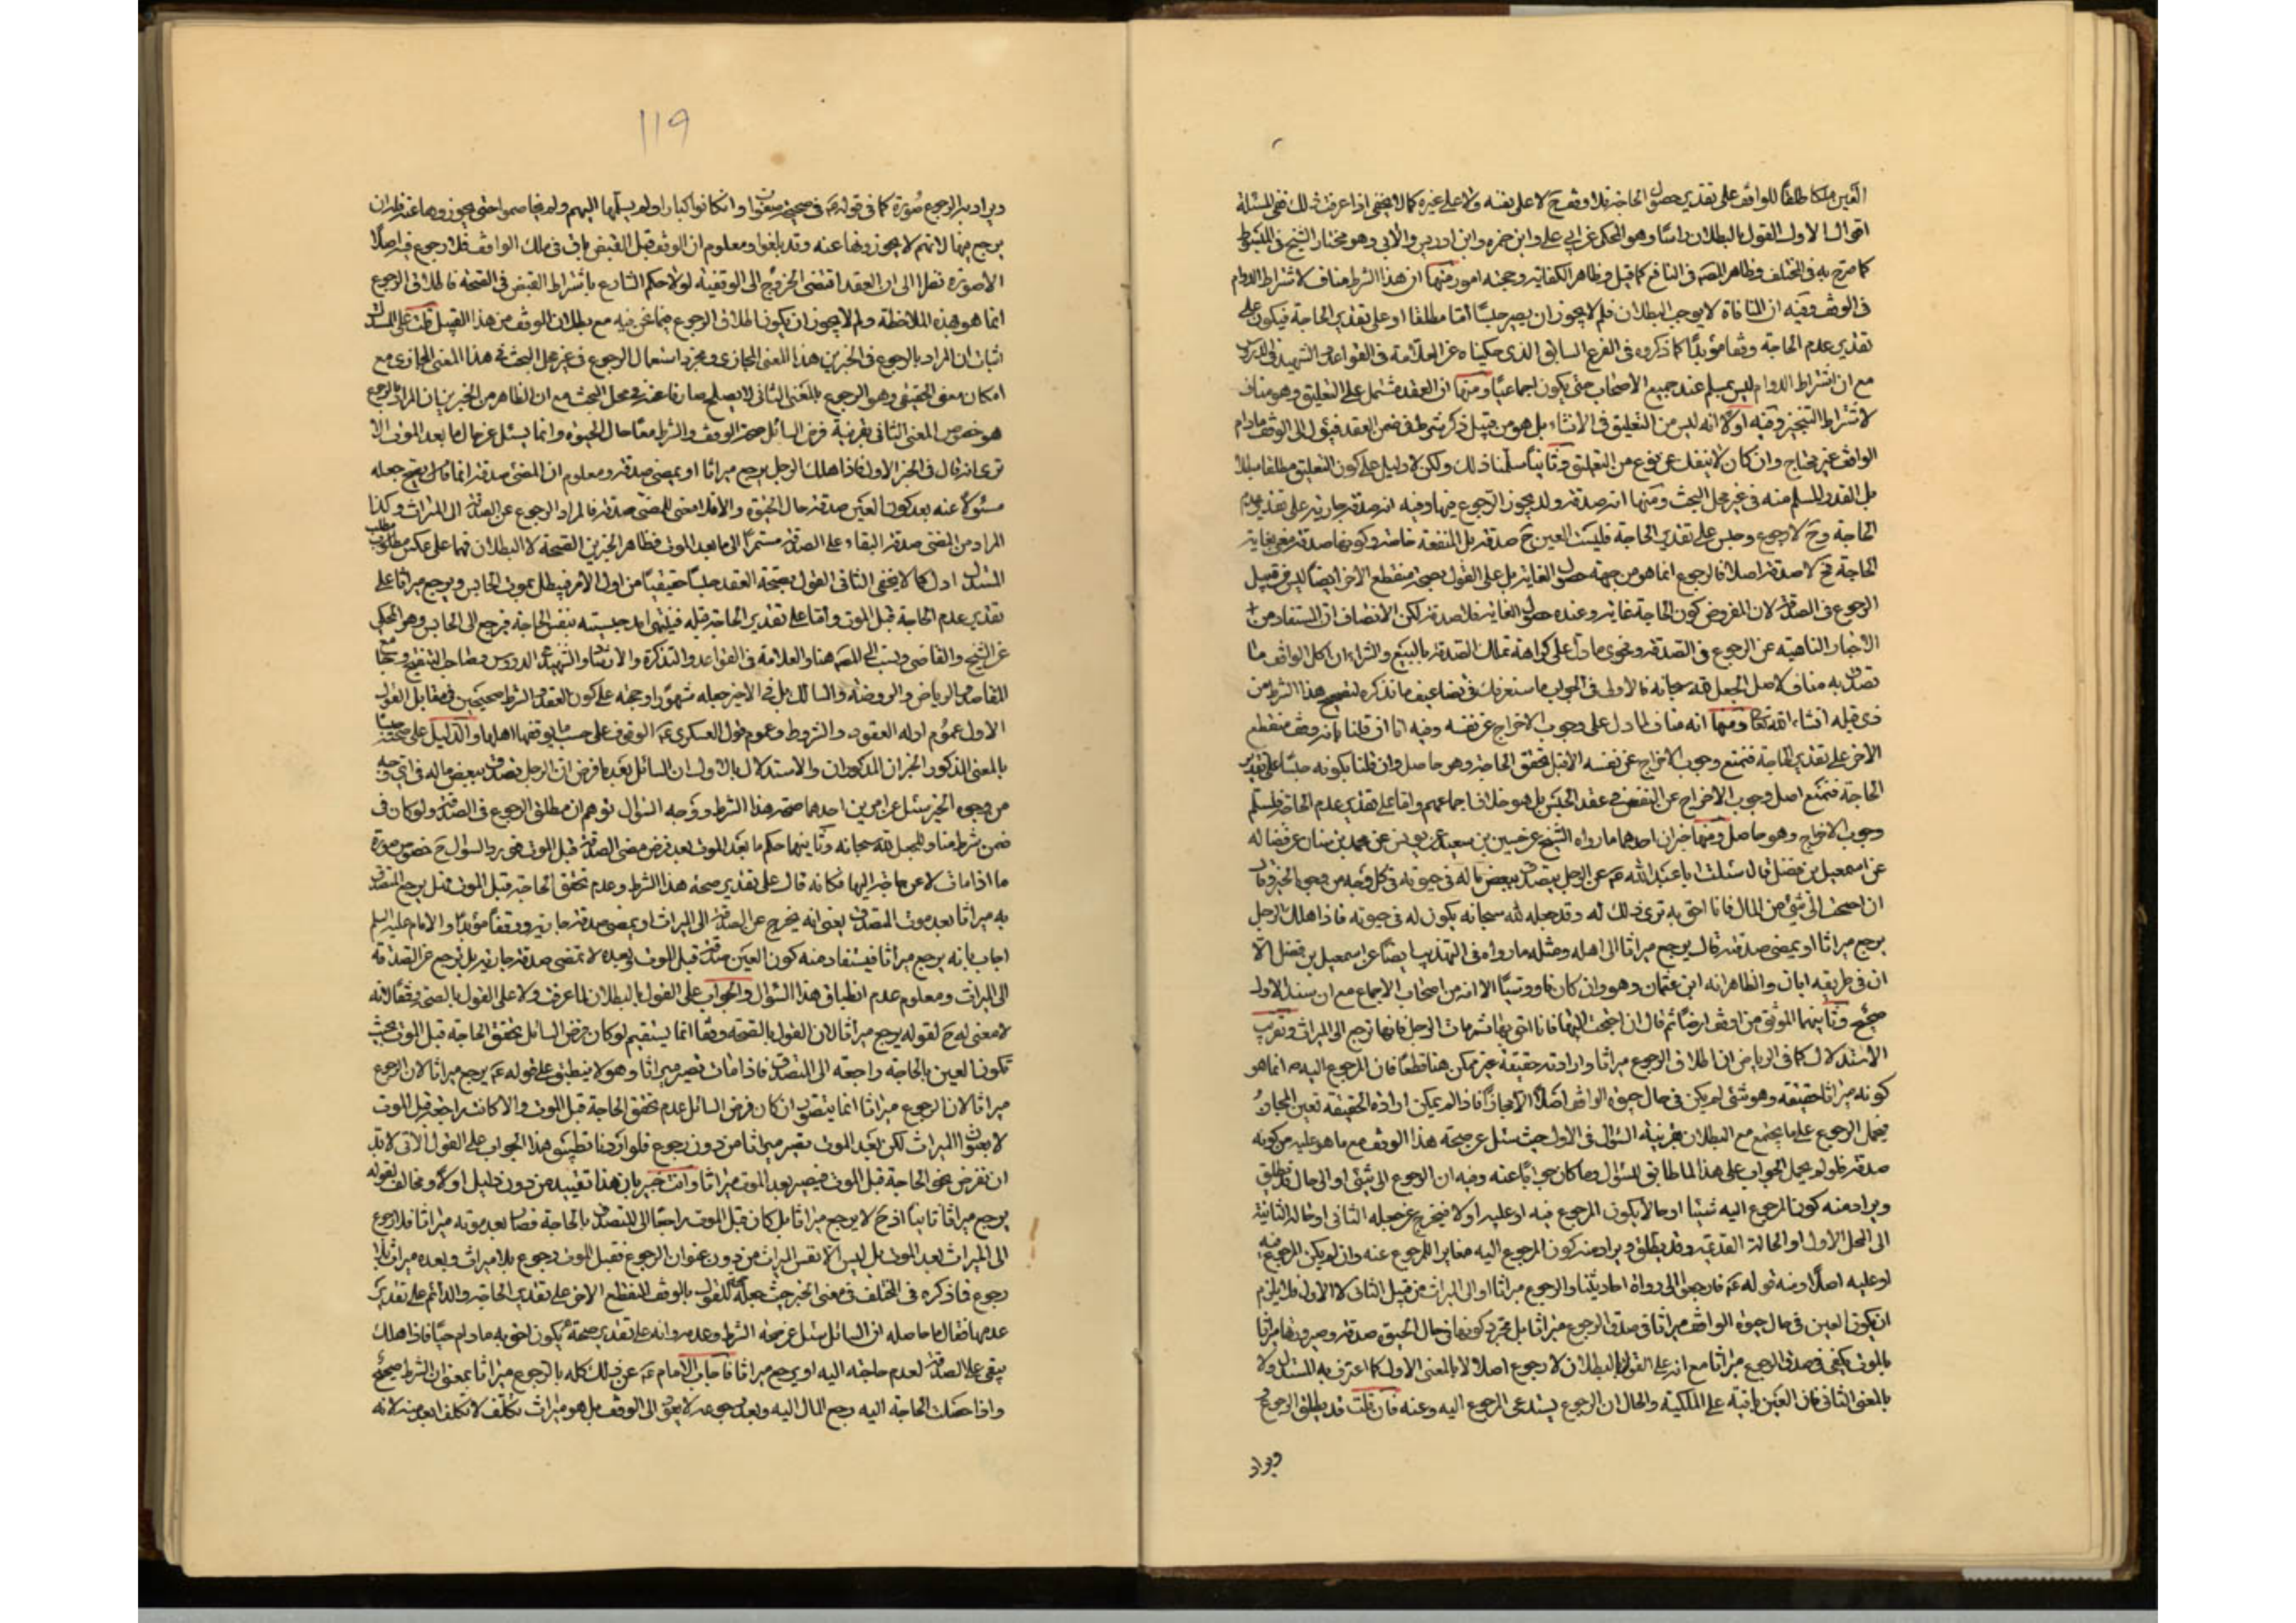 العين ملكا طلقا للواقف على تقدير حصول الحاجة فلا وقف ح لا على نفسه ولا على غيره كما لا يخفى اذا عرفت ذلك ففى المسئلة
اقوال الاول القول بالبطلان راسا وهو المحكى عن ابي علي وابن حمزه وابن ادريس والآبي وهو مختار الشيخ فى المبسوط
كما صرح به فى المختلف وظاهر المصه فى النافع كما قيل وظاهر الكفاية وحجته امور منها ان هذا الشرط مناف لاشتراط الدوام
فى الوقف وفيه ان المنافاة لا يوجب البطلان فلم لا يجوز ان يصير حبسًا اما مطلقا او على تقدير الحاجة فيكون على
تقدير عدم الحاجة وقفا مؤبدًا كما ذكروه فى الفرع السابق الذى حكيناه عن العلامة فى القواعد والشهيد فى الدروس
مع ان اشتراط الدوام ليس بمسلم عند جميع الاصحاب حتى يكون اجماعيًا ومنها ان العقد مشتمل على التعليق وهو مناف
لاشتراط التنجيز وفيه اولا انه ليس من التعليق فى الانشاء بل هو من قبيل ذكر شرط فى ضمن العقد فيؤل الى الوقف مادام
الواقف غير محتاج وان كان لا ينفك عن نوع من التعليق وثانيًا سلمنا ذلك ولكن لا دليل على كون التعليق مطلقا مبطلا
بل القدر المسلم منه فى غير محل البحث ومنها انه صدقة ولا يجوز الرجوع فيها وفيه انه صدقة جارية على تقدير عدم
الحاجة وح لا رجوع وحبس على تقدير الحاجة فليست العين ح صدقة بل المنفعة خاصة وكونها صدقة مغيى بغاية
الحاجة فح لا صدقة اصلا فالرجوع انما هو من جهة حصول الغاية بل على القول بصحة منقطع الآخر ايضًا ليس من قبيل
الرجوع فى الصدقة لان المفروض كون الحاجة غاية وعنده حصول الغاية فلا صدقة لكن الانصاف ان المستفاد من
الاخبار الناهية عن الرجوع فى الصدقة وفحوى ما دل على كراهة تملك الصدقة بالبيع والشراء ان اكل الواقف ما
تصدق به مناف لاصل الجعل لله سبحانه فالاولى فى الجواب ما ستعرف فى تضاعيف ما نذكره لتصحيح هذا الشرط من
ذى قبله انشاء الله تعالى ومنها انه مناف لما دل على وجوب الاخراج عن نفسه وفيه انا ان قلنا بانه وقف منقطع
الآخر على تقدير الحاجة فنمنع وجوب الاخراج عن نفسه الا قبل تحقق الحاجة وهو حاصل وان قلنا بكونه حبسًا على تقدير
الحاجة فنمنع اصل وجوب الاخراج عن النفس فى عقد الحبس بل هو خلاف اجماعهم واما على تقدير عدم الحاجة فلمسلم
وجوب الاخراج وهو حاصل ومنها خبران احدهما ما رواه الشيخ عن حسين بن سعيد عن يونس عن محمد بن سنان عن فضاله
عن اسمعيل بن فضل قال سئلت ابا عبد الله عم عن الرجل يتصدق ببعض ماله فى حيوته فى كل وجه من وجوه الخير وقال
ان احتجت الى شئ من المال فانا احق به ترى ذلك له وقد جعله لله سبحانه يكون له فى حيوته فاذا هلك الرجل
يرجع ميراثا او يمضى صدقة قال يرجع ميراثا الى اهله ومثله ما رواه فى التهذيب ايضًا عن اسمعيل بن فضل الا
ان فى طريقه ابان والظاهر انه ابن عثمان وهو وان كان ناووسيًا الا انه من اصحاب الاجماع مع ان سند الاول
صحيح وثانيهما الموثق من اوقف ارضًا ثم قال ان احتجت اليها فانا احق بها ثم مات الرجل فانها ترجع الى الميراث وتقريب
الاستدلال كما فى الرياض ان اطلاق الرجوع ميراثا وارادته حقيقة غير ممكن هنا قطعًا فان الرجوع اليه انما هو
كونه ميراثا حقيقه وهو شئ لم يكن فى حال حيوة الواقف اصلا الا مجازًا فاذا لم يمكن ارادة الحقيقه تعين المجاز
فيحمل الرجوع على ما يجتمع مع البطلان بقرينة السؤال فى الاول حيث سئل عن صحة هذا الوقف مع ما هو عليه من كونه
صدقة فلو لم يحمل الجواب على هذا لما طابق السؤال وما كان جوابًا عنه وفيه ان الرجوع الى شئ او الى حال قد يطلق
ويراد منه كون المرجوع اليه شيئا او حالا يكون المرجوع فيه او عليه اولا فيخرج عن محله الثانى او حاله الثانية
الى المحل الاول او الحالة القديمة وقد يطلق ويراد منه كون المرجوع اليه مغايرا للمرجوع عنه وان لم يكن المرجوع فيه
او عليه اصلًا ومنه قوله عم فارجعوا الى رواة احاديثنا والرجوع ميراثا او الى الميراث من قبيل الثانى لا الاول فلا يلزم
ان يكون العين فى حال حيوة الواقف ميراثا فى صدق الرجوع ميراثا بل مجرد كونها فى حال الحيوة صدقة وصيرورتها ميراثا
بالموت يكفى فى صدق الرجوع ميراثا مع انه على القول بالبطلان لا رجوع اصلا لا بالمعنى الاول كما اعترف به المستدل ولا
بالمعنى الثانى فان العين باقية على الملكية والحال ان الرجوع يستدعى المرجوع اليه وعنه فان قلت قد يطلق الرجوع
ويراد
119
ويراد به الرجوع صورة كما فى قوله عم فى صحيحة صفوان وان كانوا كبارا ولم يسلمها اليهم ولم يخاصموا حتى يجوزوها عنه فله ان
يرجع فيها لانهم لا يجوزونها عنه وقد بلغوا ومعلوم ان الوقف قبل القبض باق فى ملك الواقف فلا رجوع فيه اصلًا
الا صورة نظرا الى ان العقد اقتضى الخروج الى الوقفية لولا حكم الشارع باشتراط القبض فى الصحة فاطلاق الرجوع
انما هو بهذه الملاحظة ولم لا يجوز ان يكون اطلاق الرجوع فيما نحن فيه مع بطلان الوقف من هذا القبيل قلت على المستدل
اثبات ان المراد بالرجوع فى الخبرين هذا المعنى المجازى ومجرد استعمال الرجوع فى غير محل البحث فى هذا المعنى المجازى مع
امكان معنى الحقيقى وهو الرجوع بالمعنى الثانى لا يصلح صارفا عنه فى محل البحث مع ان الظاهر من الخبرين ان المراد بالرجوع
هو خصوص المعنى الثانى بقرينة فرض السائل صحة الوقف والشرط معًا حال الحيوة وانما يسئل عن حال ما بعد الموت الا
ترى انه قال فى الخبر الاول فاذا هلك الرجل يرجع ميراثا او يمضى صدقة ومعلوم ان المضى صدقة انما كان يصح جعله
مسئولا عنه بعد كون العين صدقة حال الحيوة والا فلا معنى للمضى صدقة فالمراد الرجوع عن الصدقة الى الميراث وكذا
المراد من المضى صدقة البقاء على الصدقة مستمرًا الى ما بعد الموت فظاهر الخبرين الصحة لا البطلان فهما على عكس مطلوب
المستدل ادل كما لا يخفى الثانى القول بصحة العقد حبسًا حقيقيًا من اول الامر فيبطل بموت الحابس ويرجع ميراثا على
تقدير عدم الحاجة قبل الموت واما على تقدير الحاجة قبله فينتهى امد حبسيته بنفس الحاجة فيرجع الى الحابس وهو المحكى
عن الشيخ والقاضى ونسب الى المصه هنا والعلامة فى القواعد والتذكرة والارشاد والشهيد فى الدروس وصاحب التنقيح وجامع
المقاصد والرياض والروضة والمسالك بل فى الاخير جعله مشهورًا وحجته على كون العقد والشرط صحيحين فى مقابل القول
الاول عموم ادله العقود والشروط وعموم قول العسكرى عم الوقوف على حسب ما يوقفها اهلها والدليل على صحته حبسًا
بالمعنى المذكور الخبران المذكوران والاستدلال بالاول ان السائل بعد ما فرض ان الرجل تصدق ببعض ماله فى اى وجه
من وجوه الخير سئل عن امرين احدهما صحة هذا الشرط ووجه السؤال توهم ان مطلق الرجوع فى الصدقة ولو كان فى
ضمن شرط مناف للجعل لله سبحانه وثانيهما حكم ما بعد الموت بعد فرض مضى الصدقة قبل الموت فمورد السؤال ح خصوص صورة
ما اذا مات لا عن حاجة اليها فكانه قال على تقدير صحة هذا الشرط وعدم تحقق الحاجة قبل الموت فهل يرجع المتصدق
به ميراثا بعد موت المتصدق يعنى انه يخرج عن الصدقة الى الميراث او يمضى صدقة جارية ووقفًا مؤبدًا والامام عليه السلم
اجاب بانه يرجع ميراثا فيستفاد منه كون العين صدقة قبل الموت وبعده لا تمضى صدقة جارية بل يرجع عن الصدقة
الى الميراث ومعلوم عدم انطباق هذا السؤال والجواب على القول بالبطلان لما عرفت ولا على القول بالصحة وقفًا لانه
لا معنى له ح لقوله يرجع ميراثا لان القول بالصحة وقفًا انما يستقيم لو كان فرض السائل تحقق الحاجة قبل الموت بحيث
تكون العين بالحاجة راجعة الى المتصدق فاذا مات تصير ميراثا وهو لا ينطبق على قوله عم يرجع ميراثا لان الرجوع
ميراثا لان الرجوع ميراثا انما يتصور ان كان فرض السائل عدم تحقق الحاجة قبل الموت والا كانت راجعة قبل الموت
لا بعنوان الميراث لكن بعد الموت تصير ميراثا من دون رجوع فلو اردنا تطبيق هذا الجواب على القول الآتى لا بد
ان نفرض تحقق الحاجة قبل الموت فيصير بعد الموت ميراثا وانت خبير بان هذا تقييد من دون دليل اولًا ومخالف لقوله
يرجع ميراثا ثانيًا اذ ح لا يرجع ميراثا بل كان قبل الموت راجعًا الى المتصدق بالحاجة فصار بعد موته ميراثا فلا رجوع
الى الميراث بعد الموت بل ليس الا نفس الميراث من دون عنوان الرجوع فقبل الموت رجوع بلا ميراث وبعده ميراث بلا
رجوع فما ذكره فى المختلف فى معنى الخبر حيث جعله للقول بالوقف المنقطع الآخر على تقدير الحاجة والدائم على تقدير
عدمها فقال ما حاصله ان السائل سئل عن صحة الشرط وعدمه وانه على تقدير صحة يكون احق به مادام حيًا فاذا هلك
يبقى على الصدقة لعدم حاجته اليه او يرجع ميراثا فاجاب الامام عم عن ذلك كله بالرجوع ميراثا بمعنى ان الشرط صحيح
واذا حصلت الحاجة اليه رجع المال اليه وبعد رجوعه لا يعود الى الوقف بل هو ميراث تكلف لا تكلف ابعد منه لانه